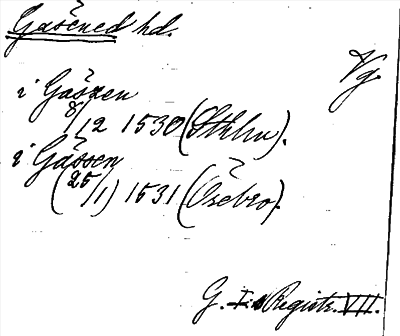 Gåsened hd.
Vg.
i Gåszen
8/12 1530 (Sthlm).
i Gåssen
(25/1) 1531 (Örebro).
G. I:s Registr. VII.